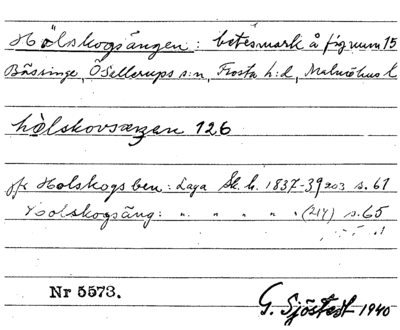 Hölskogsängen: betesmark å fig num 15
Bäsinge, Ö Sallerups s:n, Frosta h:d, Malmöhus l
hòlskovsæŋen 126
jfr Holskogs ben: Laga Sk. h. 1837-39 203 s. 61
Holskogsäng: " " " " " (214) s. 65
Nr 5573.
G. Sjöstedt 1940